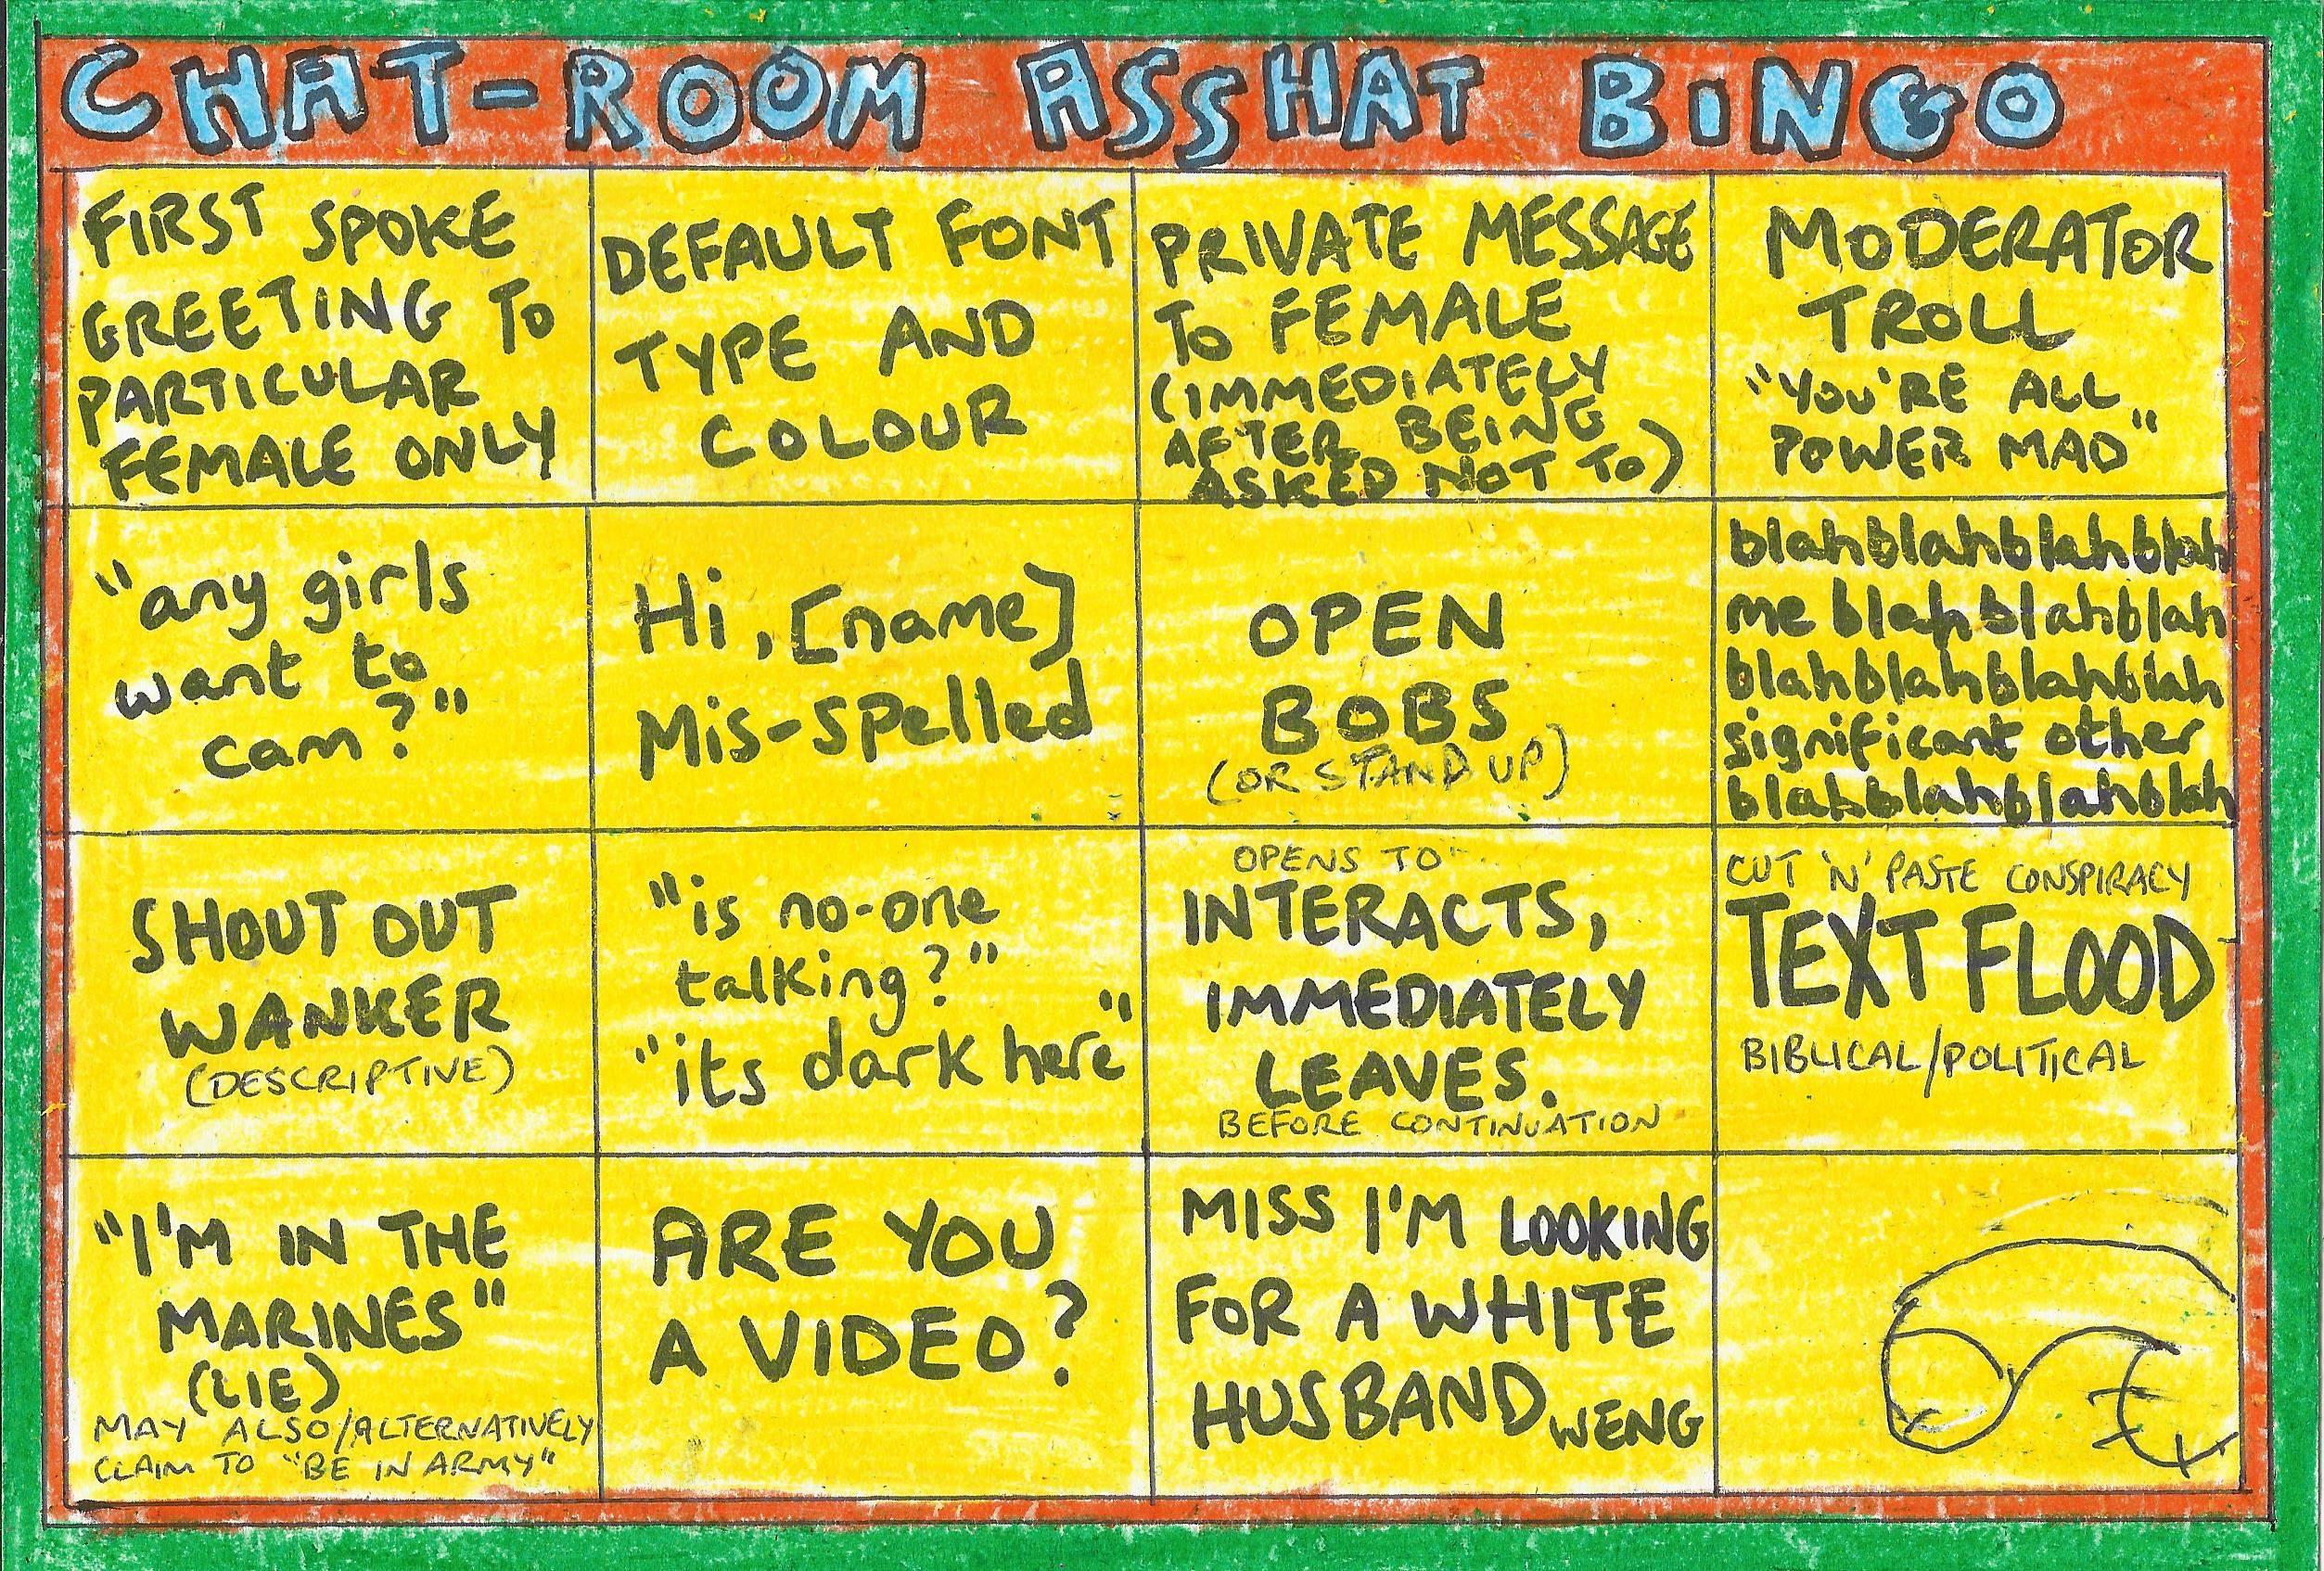 CHAT-ROOM ASSHAT BINGO
FIRST SPOKE
GREETING TO
PARTICULAR
FEMALE ONLY
DEFAULT FONT
TYPE AND
COLOUR
PRIVATE MESSAGE
TO FEMALE
(IMMEDIATELY
AFTER BEING
ASKED NOT TO)
MODERATOR
TROLL
"YOU'RE ALL
POWER MAD"
"any girls
want to
cam?"
Hi, [name]
Mis-spelled
OPEN
BOBS
(OR STAND UP)
blahblahblahblah
me blahblahblah
blahblahblahblah
significant other
blahblahblahblah
SHOUT OUT
WANKER
(DESCRIPTIVE)
"is no-one
talking?"
"its dark here"
OPENS TO"
INTERACTS,
IMMEDIATELY
LEAVES.
BEFORE CONTINUATION
CUT 'N' PASTE CONSPIRACY
TEXT FLOOD
BIBLICAL/POLITICAL
"I'M IN THE
MARINES"
(LIE)
MAY ALSO/ALTERNATIVELY
CLAIM TO "BE IN ARMY"
ARE YOU
A VIDEO?
MISS I'M LOOKING
FOR A WHITE
HUSBAND WENG